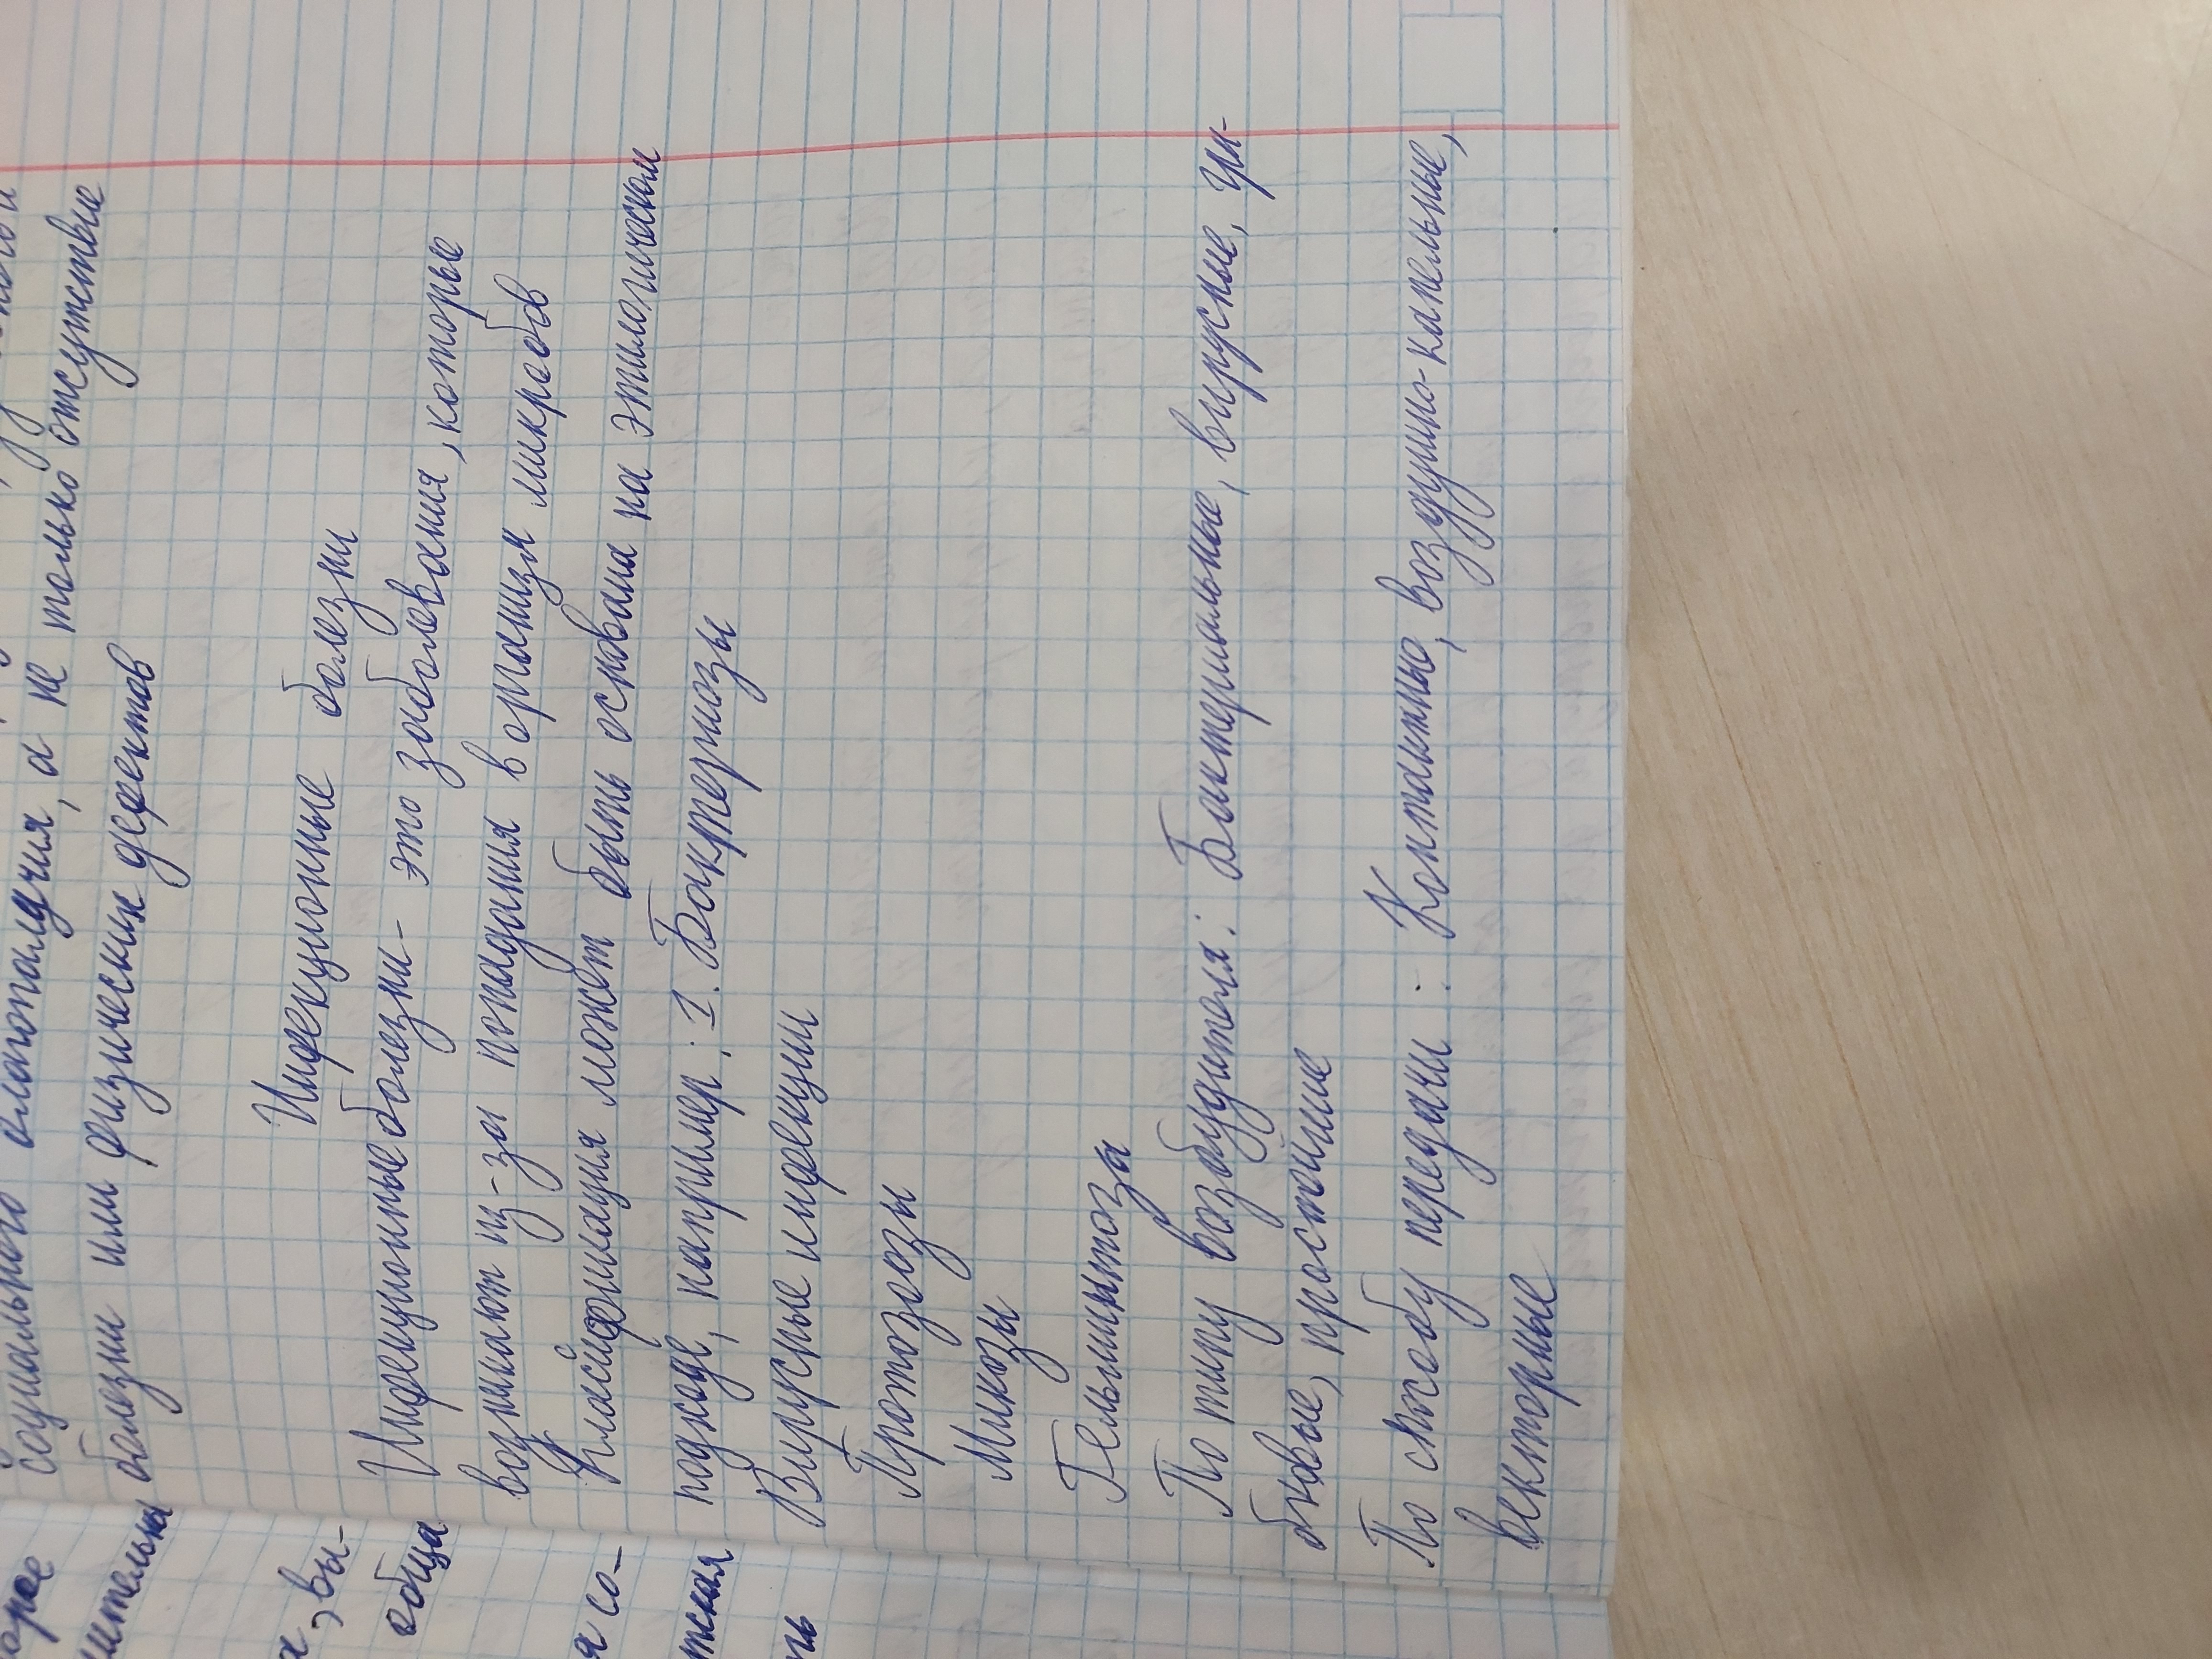 социального благополучия, а не только отсутствие
болезни или физических дефектов
Инфекционные болезни
Инфекционные болезни - это заболевания, которые
возникают из-за попадания в организм микробов
Классификация может быть основана на этиологическом
подходе, например: 1. Бактериозы
Вирусные инфекции
Протозоозы
Микозы
Гельминтоза
По типу возбудителя: Бактериальные, вирусные, гри-
бковые, простейшие
По способу передачи: Контактно, воздушно-капельные,
векторные
а, вы-
обща
я со-